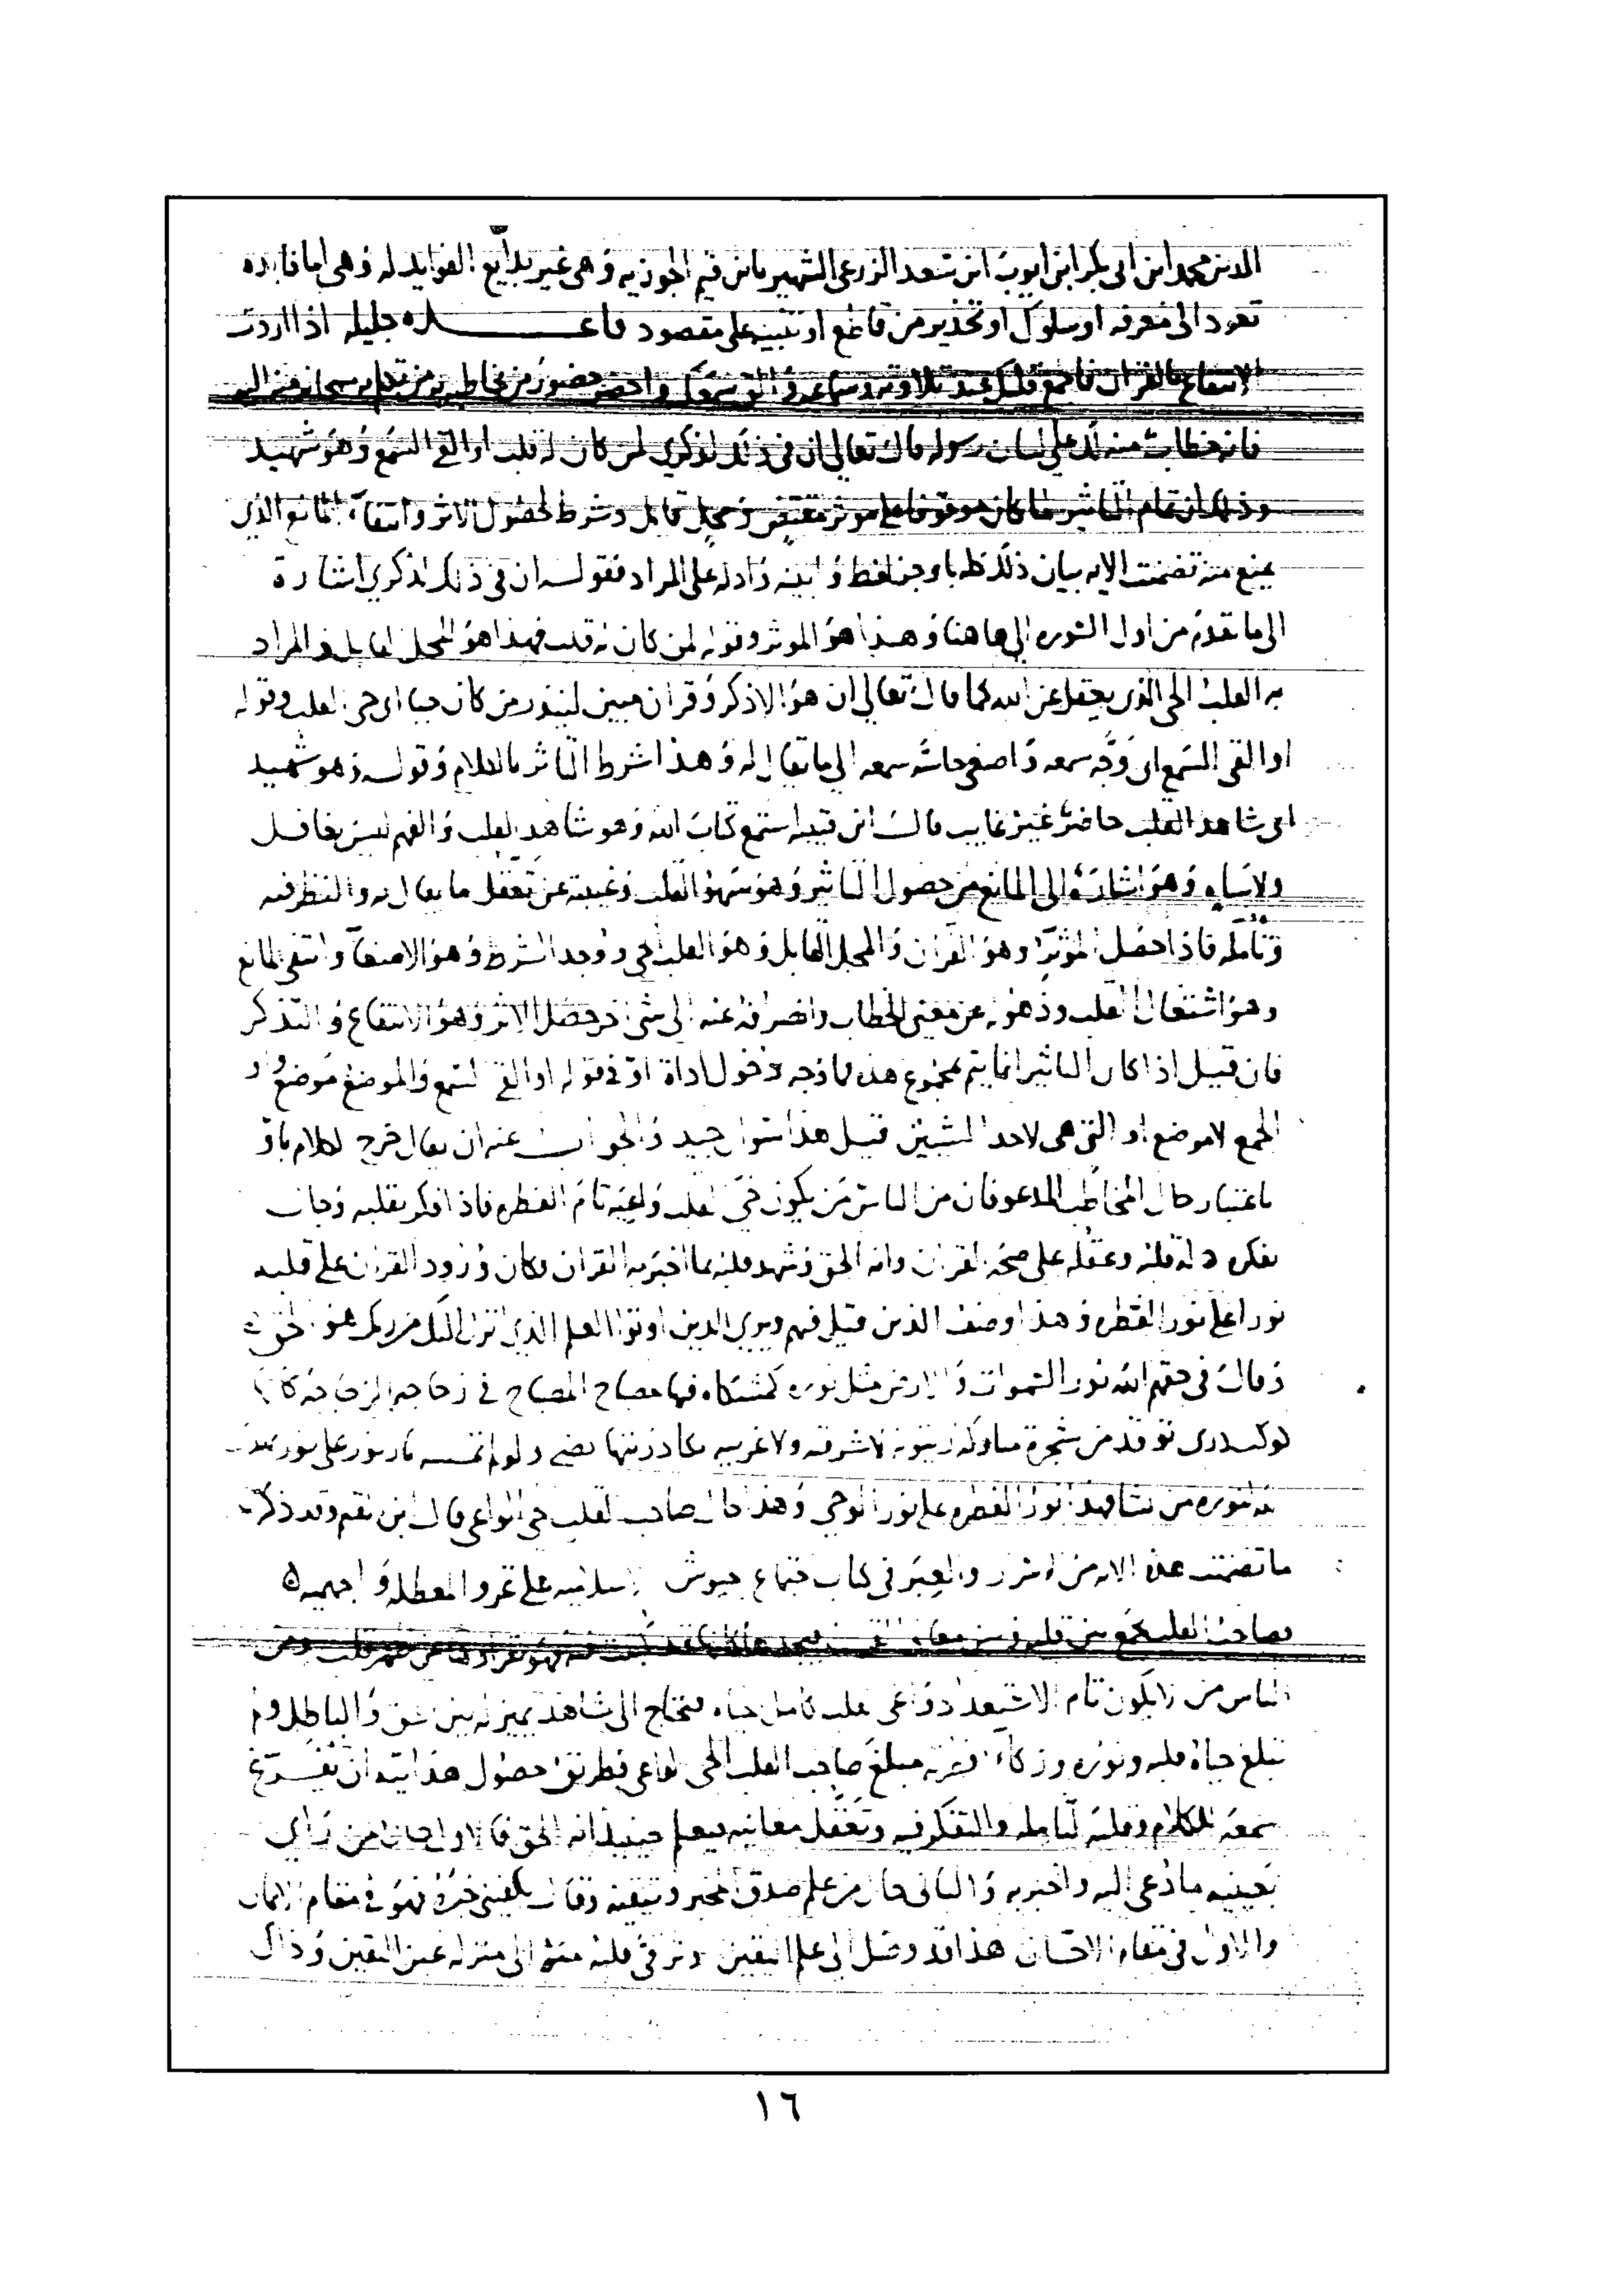 الدين محمد ابن ابي بكر ابن ايوب ابن سعد الزرعي الشهير بابن قيم الجوزيه وهي غير بدايع الفوايد له وهي اما فايده
تعود الى معرفه او سلوك او تحذير من قاطع او تنبيه على مقصود قاعـــــده جليله اذا اردت
الانتفاع بالقران فاجمع قلبك عند تلاوته وسماعه والق سمعك واحضر حضور من يخاطبه به من تكلم به سبحانه منه اليه
فانه خطاب منه لك على لسان رسوله قال تعالى ان في ذلك لذكرى لمن كان له قلب او القى السمع وهو شهيد
وذلك ان تمام التاثير لما كان موقوفا على موثر مقتض ومحل قابل وشرط لحصول الاثر وانتفآء المانع الذي
يمنع منه تضمنت الايه بيان ذلك كله باوجز لفظ وابينه وادله على المراد فقوله ان في ذلك لذكرى اشارة
الى ما تقدم من اول السوره الى هاهنا وهذا هو الموثر وقوله لمن كان له قلب فهذا هو المحل القابل والمراد
به القلب الحي الذي يعقل عن الله كما قال تعالى ان هو الا ذكر وقران مبين لينذر من كان حيا اي حي القلب وقوله
او القى السمع اي وجه سمعه واصغى حاسة سمعه الى ما يقال له وهذا شرط التاثر بالكلام وقوله وهو شهيد
اي شاهد القلب حاضر غير غايب قال ابن قتيبه استمع كتاب الله وهو شاهد القلب والفهم ليس بغافل
ولا ساه وهو اشارة الى المانع من حصول التاثير وهو سهو القلب وغيبته عن تعقل ما يقال له والنظر فيه
وتامله فاذا حصل الموثر وهو القران والمحل القابل وهو القلب الحي ووجد الشرط وهو الاصغآ وانتفى المانع
وهو اشتغال القلب وذهوله عن معنى الخطاب وانصرافه عنه الى شي اخر حصل الاثر وهو الانتفاع والتذكر
فان قيل اذا كان التاثير انما يتم بمجموع هذه فما وجه دخول اداة او في قوله او القى السمع والموضع موضع واو
الجمع لا موضع او التي هي لاحد الشيئين قيل هذا سوال جيد والجواب عنه ان يقال خرج الكلام باو
باعتبار حال المخاطب المدعو فان من الناس من يكون حي القلب واعيه تام الفطره فاذا فكر بقلبه وجال
بفكره دله قلبه وعقله على صحة القران وانه الحق وشهد قلبه بما اخبر به القران فكان ورود القران على قلبه
نورا على نور الفطره وهذا وصف الذين قيل فيهم ويرى الذين اوتوا العلم الذي انزل اليك من ربك هو الحق
وقال في حقهم الله نور السموات والارض مثل نوره كمشكاه فيها مصباح المصباح في زجاجه الزجاجة كانها
كوكب دري توقد من شجرة مباركه زيتونه لا شرقيه ولا غربيه يكاد زيتها يضي ولو لم تمسسه نار نور على نور يهدي
الله لنوره من يشا فهذا نور الفطره على نور الوحي وهذا حال صاحب القلب الحي الواعي قال ابن القيم وقد ذكرت
ما تضمنت هذه الايه من الاسرار والعبر في كتاب اجتماع جيوش الاسلاميه على غزو المعطله والجهميه
فصاحب القلب يجمع بين قلبه وبين معاني القران فيجدها كانها قد كتبت فيه فهو يقراوها عن ظهر قلب ومن
الناس من لا يكون تام الاستعداد واعي القلب كامل الحياه فيحتاج الى شاهد يميز له بين الحق والباطل ولم
تبلغ حياة قلبه ونوره وزكاء فطرته مبلغ صاحب القلب الحي الواعي فطريق حصول هدايته ان يفرغ
سمعه للكلام وقلبه لتامله والتفكر فيه وتعقل معانيه فيعلم حينيذ انه الحق فالاول حال من راى
بعينيه ما دعي اليه واخبر به والثاني حال من علم صدق المخبر وتيقنه وقال يكفيني خبره فهو في مقام الايمان
والاول في مقام الاحسان هذا قد وصل الى علم اليقين وترقى قلبه منه الى منزله عين اليقين وذاك
١٦